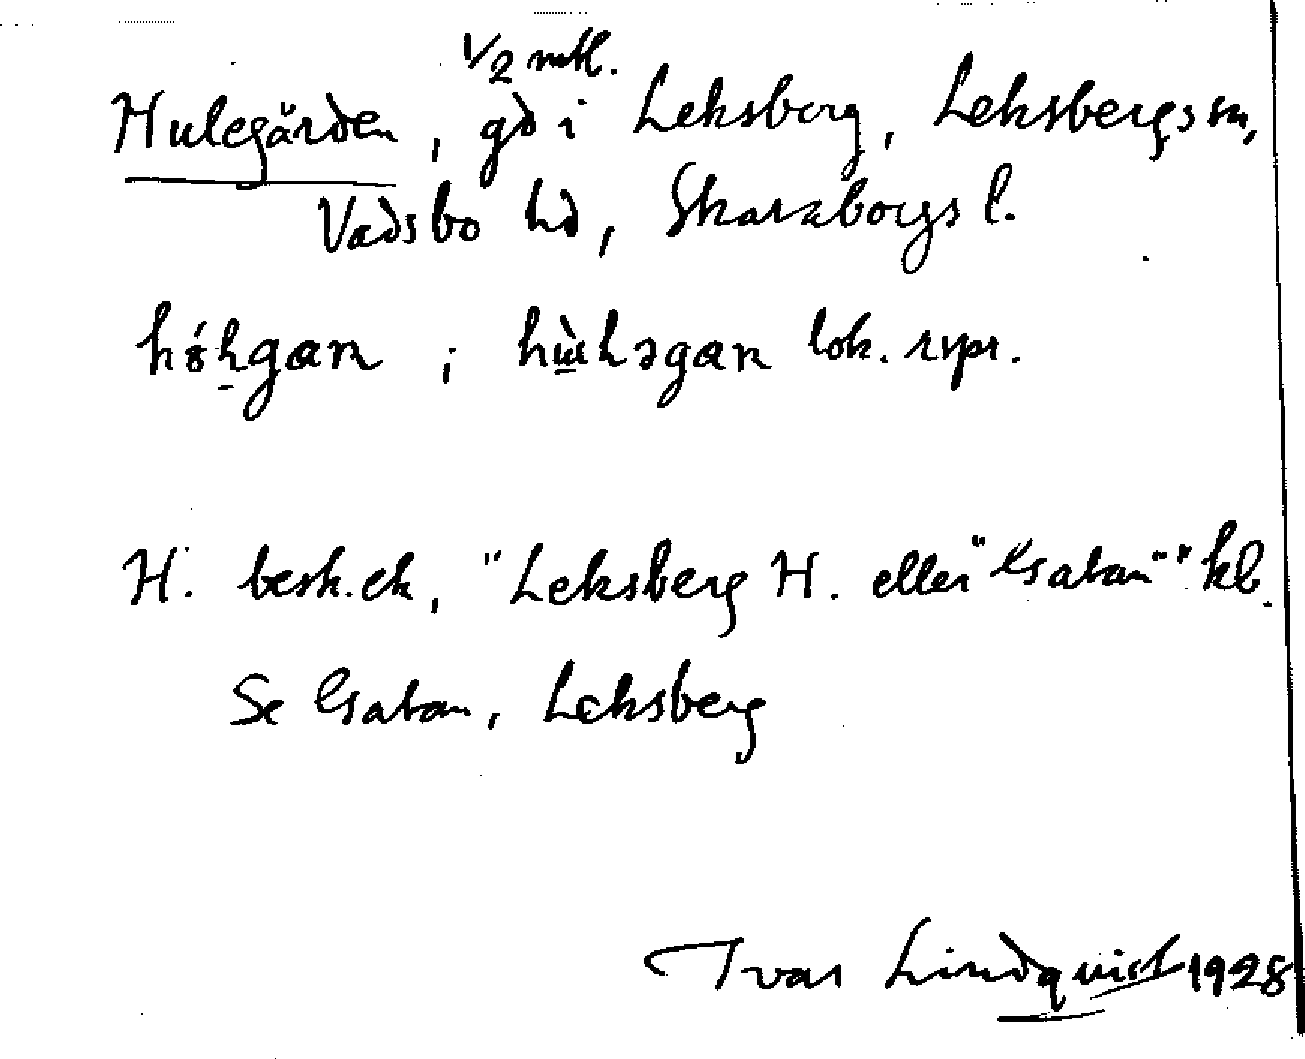 Hulegården, 1/2 mtl. gd i Leksberg, Leksbergs sn,
Vadsbo hd, Skaraborgs l.
lok. rspr.
H. besk. ek, "Leksberg H. eller "Gatan"" kb.
Se Gatan, Leksberg
Ivar Lindquist 1928